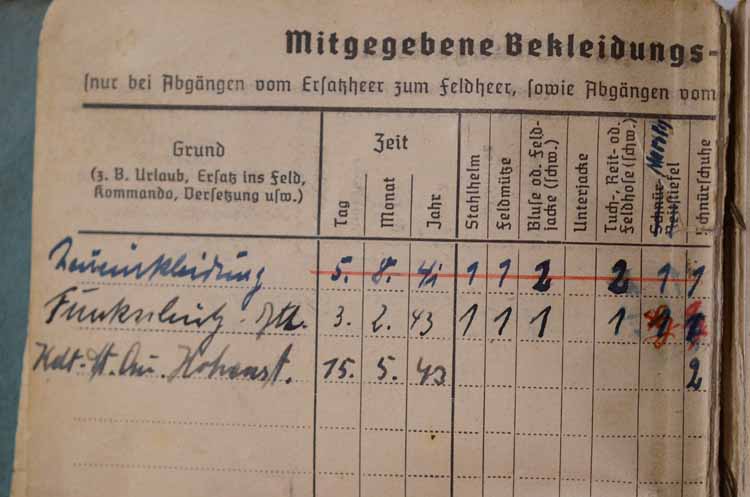 Mitgegebene Bekleidungs-
(nur bei Abgängen vom Ersatzheer zum Feldheer, sowie Abgängen vom
Grund
(z. B. Urlaub, Ersatz ins Feld,
Kommando, Versetzung usw.)
Zeit
Tag
Monat
Jahr
Stahlhelm
Feldmütze
Bluse od. Feld-
jacke (schw.)
Unterjacke
Tuch-, Reit- od.
Feldhose (schw.)
Schnür- Marsch
Reitstiefel
Schnürschuhe
Neueinkleidung 5. 8. 41 1 1 2 2 1 1
3. 2. 43 1 1 1 1
Kdt. Hohenst. 15. 5. 43 2